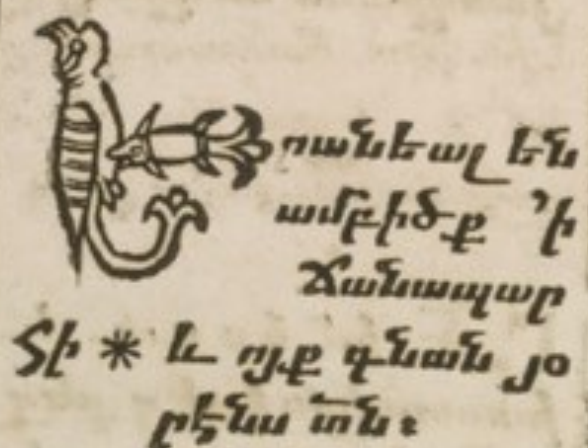 Երանեալ են
ամբիծք ՚ի
ճանապար
հի * և ոյք գնան յօ
րէնս տն։